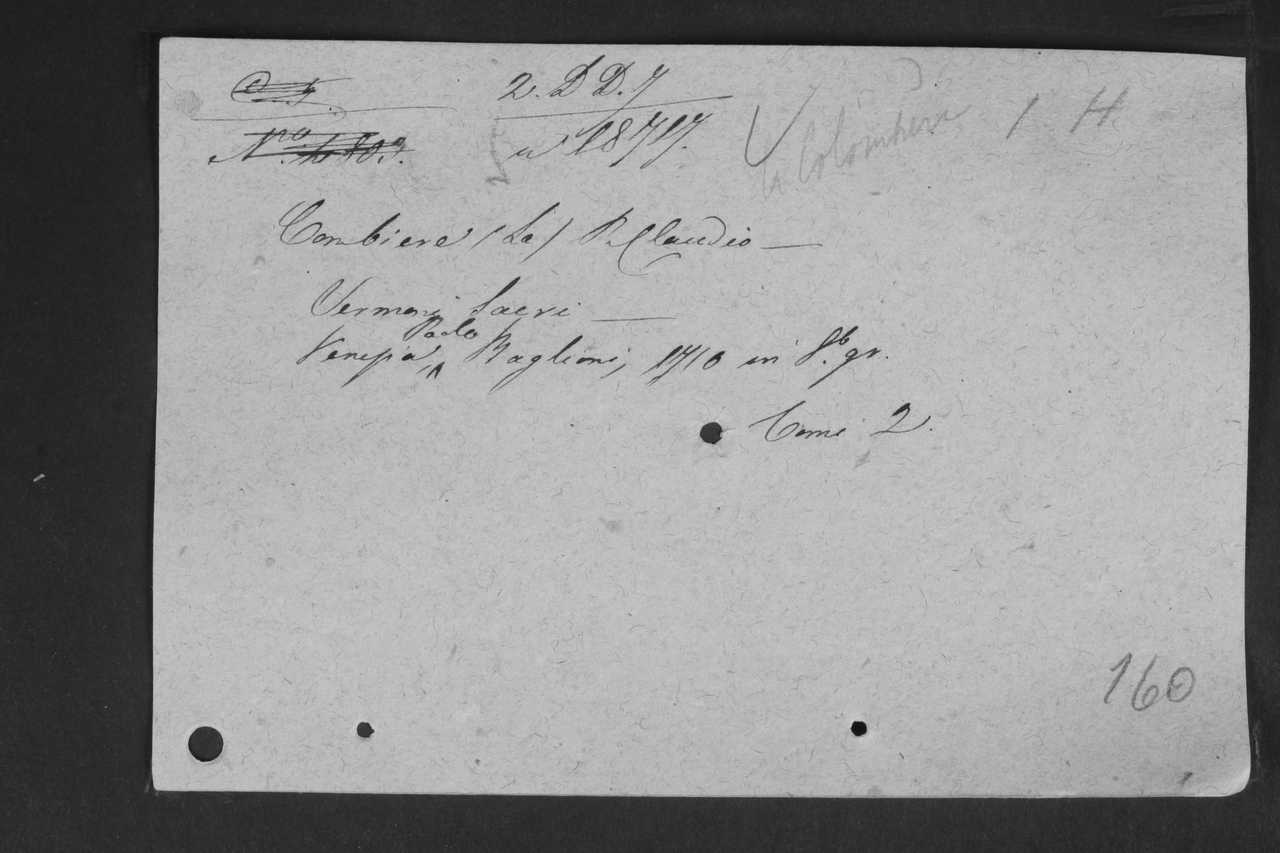 2. D D. 7
n° 18717.
la Colombiera 1 H
Combiere (La) P. Claudio —
Sermoni Sacri —
Venezia, Paolo Baglioni, 1710 in 8.° gr.
Tomi 2.
160